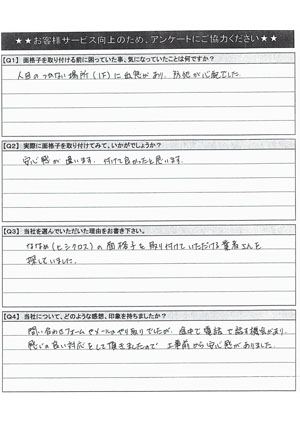 ★★お客様サービス向上のため、アンケートにご協力ください★★
【Q1】面格子を取り付ける前に困っていた事、気になっていたことは何ですか？
人目のつかない場所（1F）に出窓があり、防犯が心配でした。
【Q2】実際に面格子を取り付けてみて、いかがでしょうか？
安心感が違います。付けて良かったと思います。
【Q3】当社を選んでいただいた理由をお書き下さい。
ななめ（ヒシクロス）の面格子を取り付けていただける業者さんを
探していました。
【Q4】当社について、どのような感想、印象を持ちましたか？
問い合わせフォームやメールのやり取りでしたが、途中で電話で話す機会があり、
感じの良い対応をして頂きましたので工事前から安心感がありました。